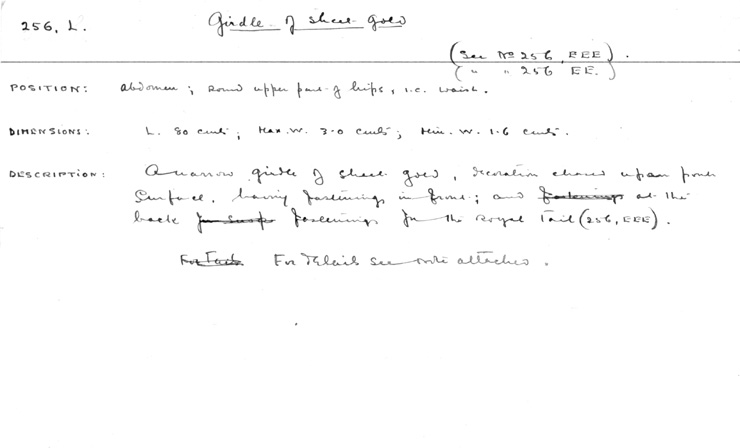 256, L. Girdle of sheet-gold
(See No 256, EEE).
( " " 256 EE. )
POSITION: abdomen; round upper part of hips, i.c. waist.
DIMENSIONS: L. 80 cents; Max. W. 3.0 cents; Min. W. 1.6 cents.
DESCRIPTION: A narrow girdle of sheet gold, decoration chased upon front
surface, having fastenings in front; and fastenings at the
back for susp fastenings for the Royal Tail (256, EEE).
For Details see note attached.